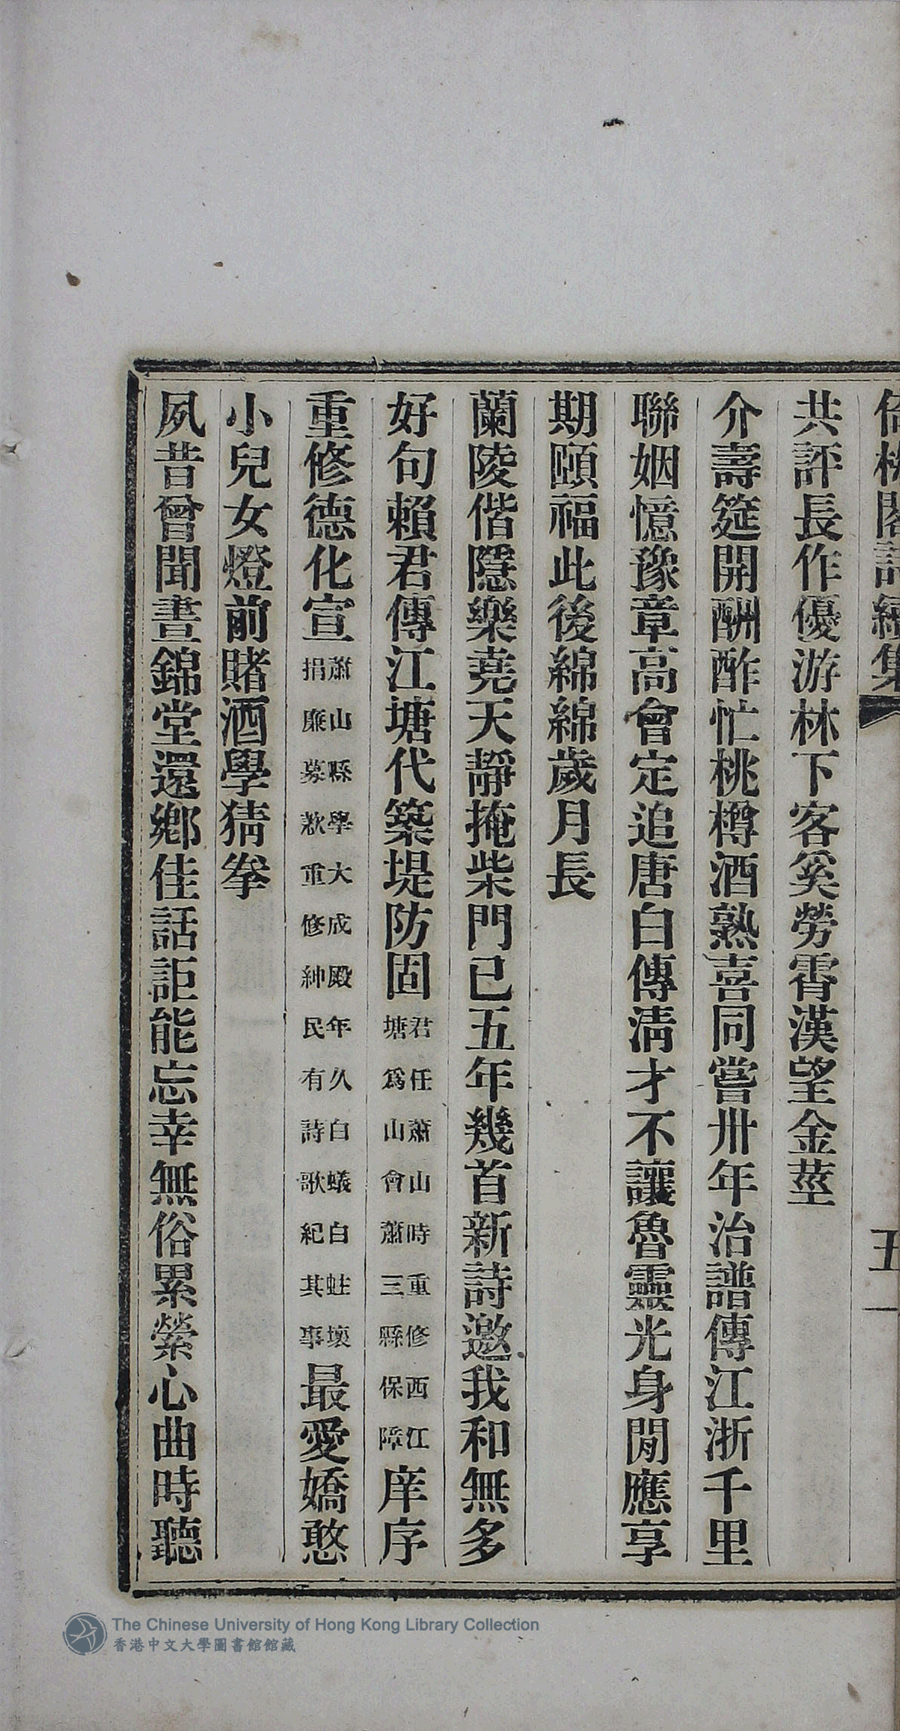 共評長作優游林下客奚勞霄漢望金莖
介壽筵開酬酢忙桃樽酒熟喜同嘗卅年治譜傳江浙千里
聯姻憶豫章高會定追唐白傳清才不讓魯靈光身閒應享
期頤福此後綿綿歲月長
蘭陵偕隱樂堯天靜掩柴門已五年幾首新詩邀我和無多
好句賴君傳江塘代築堤防固君任蕭山時重修西江塘爲山會蕭三縣保障庠序
重修德化宣蕭山縣學大成殿年久白蟻白蛀壞捐廉募款重修紳民有詩歌紀其事最愛嬌憨
小兒女燈前賭酒學猜拳
夙昔曾聞晝錦堂還鄉佳話詎能忘幸無俗累縈心曲時聽
The Chinese University of Hong Kong Library Collection
香港中文大學圖書館館藏